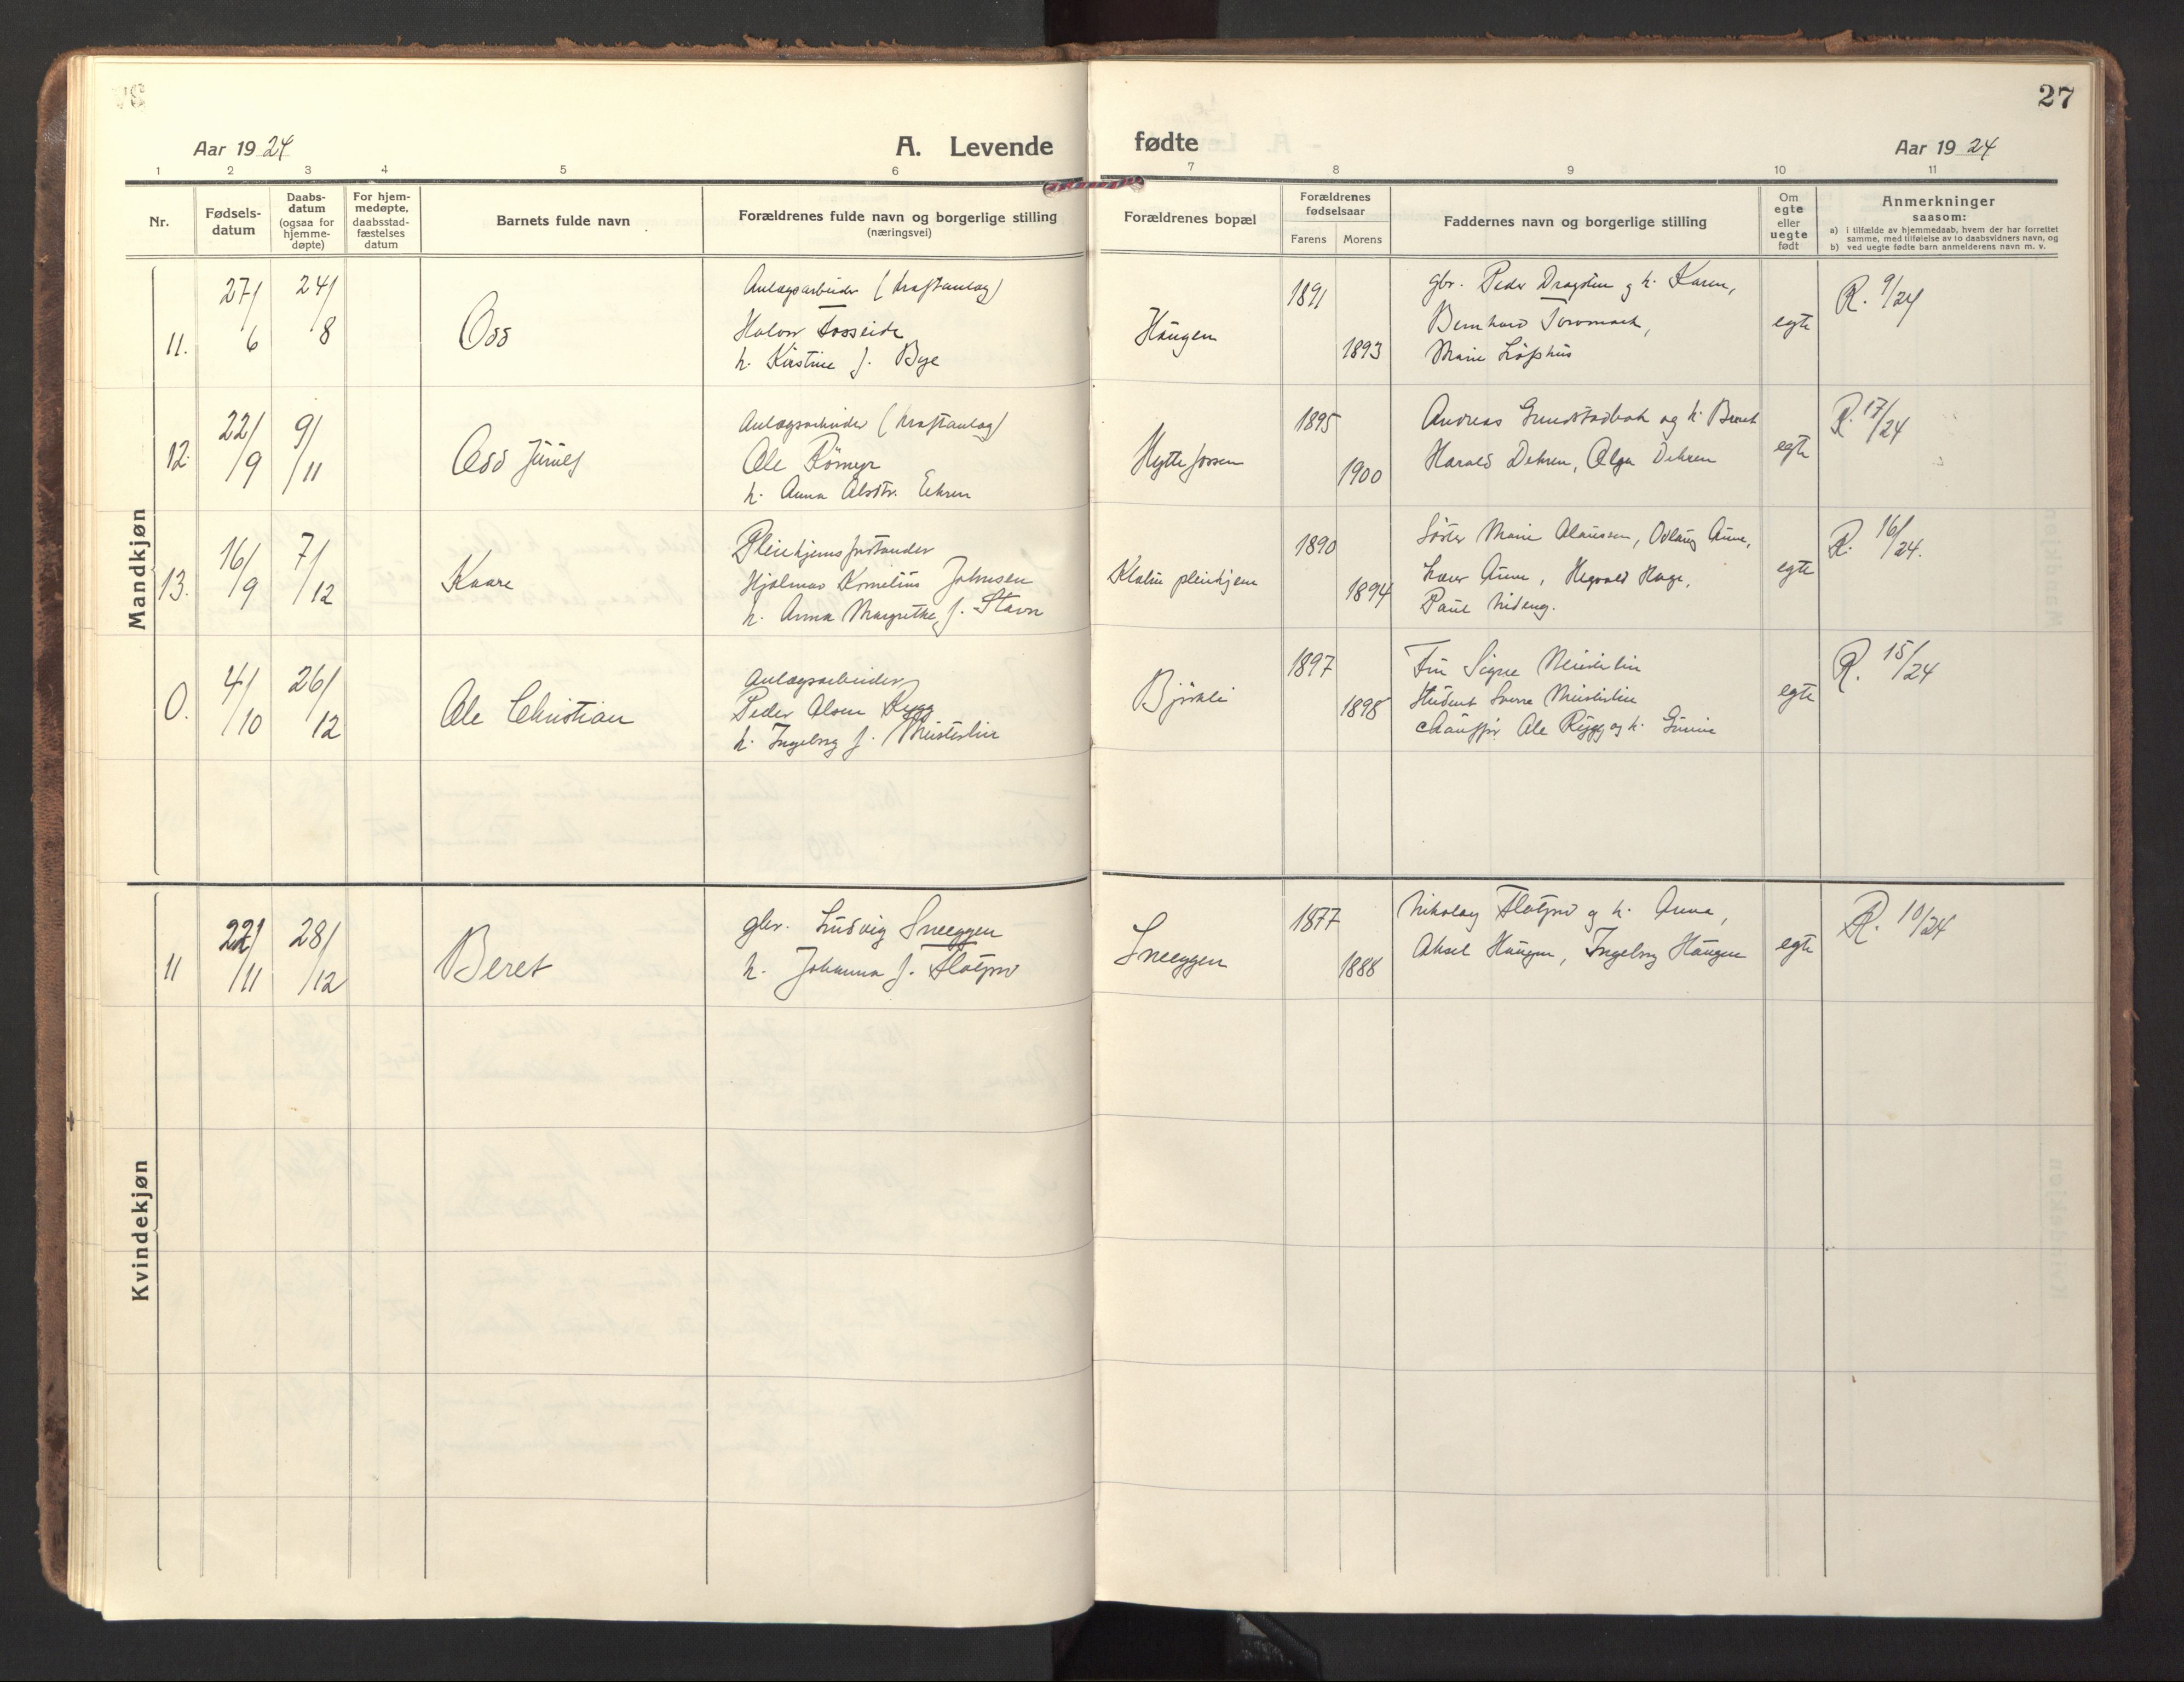 27
Aar 1924
A. Levende fødte
Aar 1924
1 2 3 4 5 6 7 8 9 10 11
Nr.
Fødsels-
datum
Daabs-
datum
(ogsaa for
hjemme-
døpte)
For hjem-
medøpte,
daabsstad-
fæstelses
datum
Barnets fulde navn
Forældrenes fulde navn og borgerlige stilling
(næringsvei)
Forældrenes bopæl
Forældrenes
fødselsaar
Farens Morens
Faddernes navn og borgerlige stilling
Om
egte
eller
uegte
født
Anmerkninger
saasom:
a) i tilfælde av hjemmedaab, hvem der har forrettet
samme, med tilføielse av to daabsvidners navn, og
b) ved uegte fødte barn anmelderens navn m. v.
Mandkjøn
11.
27/6
24/8
Odd
Anlægsarbeider (kraftanlæg)
Halvor Fosseide
h. Kirstine f. Bye
Haugen
1891
1893
gbr. Peder Dragsten og h. Karen,
Bernhard
Marie Løfshus
egte
R. 9/24
12.
22/9
9/11
Odd
Anlægsarbeider (kraftanlæg)
Ole
h. Anna
Hyttefossen
1895
1900
Andreas Grendstadbak og h. Beret
Harald Dehren, Olga Dehren
egte
R. 17/24
13.
16/9
7/12
Kaare
Pleiehjemsforstander
Hjalmar Kornelius Johnsen
h. Anna Margrethe, f. Stavn
pleiehjem
1890
1894
Søster Marie Olaussen, Odlaug Aune,
Lærer Aune, Hage,
Paul Nideng.
egte
R. 16/24.
0.
4/10
26/12
Ole Christian
Anlægsarbeider
Peder Olsen Rygg
h. Ingeborg f. Meisterlin
Bjørkli
1897
1898
Fru Signe Meisterlin
Student Sverre Meisterlin
chauffør Ole Rygg og h. Gunine
egte
R. 15/24
Kvindekjøn
11
22/11
28/12
Beret
gbr. Ludvig Sneeggen
h. Johanna f. Flatjord
Sneeggen
1877
1888
Nikolay Flatjord og h. Anna,
Aksel Haugen, Ingeborg Haugen
egte
R. 10/24